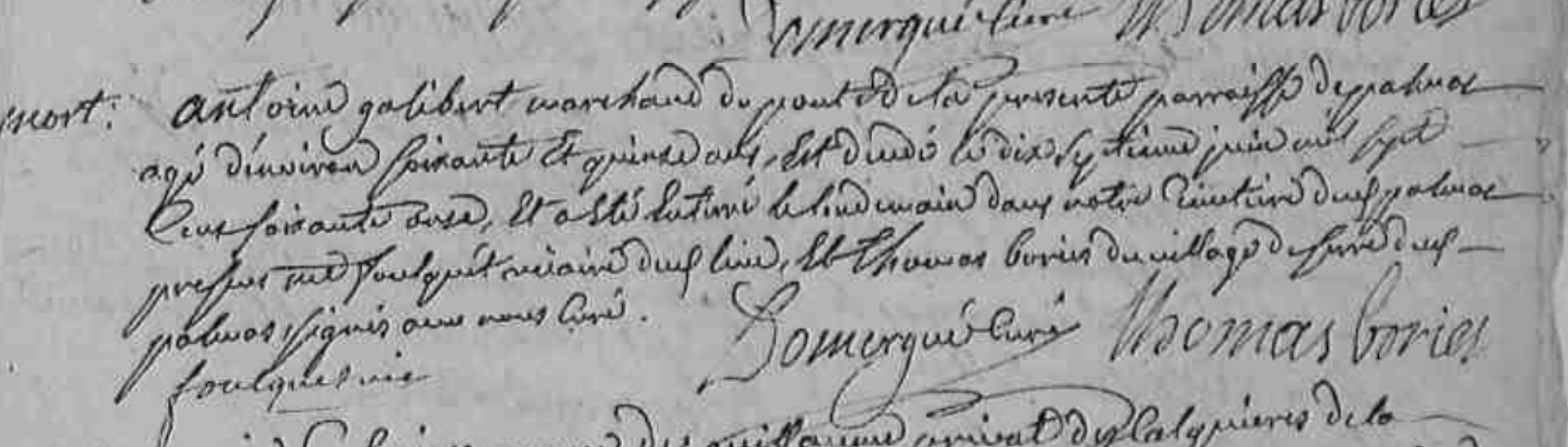 Domergué Curé Thomas bories
mort. antoine galibert marchand du pont et de la presente parroisse despalmas
agé d'environ soixante et quinze ans, est decedé le dix septieme juin mil sept
cens soixante onze, et a esté enterré le lendemain dans notre Cimetiere dud palmas
presens me foulquet vicaire dud lieu, et thomas bories du village de serre dud
palmas signés avec nous Curé.
Domergué Curé thomas bories
foulquet vic
guillaume privat de la